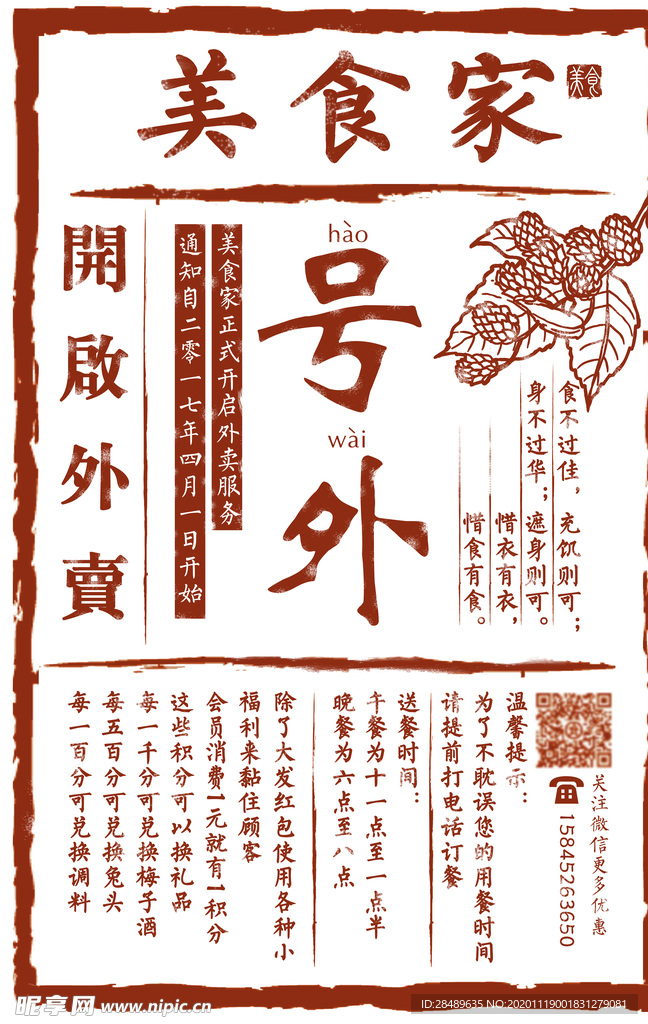 美食家
美食
hào
号
wài
外
食不过佳，充饥则可；
身不过华；遮身则可。
惜衣有衣，
惜食有食。
美食家正式开启外卖服务
通知自二零一七年四月一日开始
開啟外賣
关注微信更多优惠
15845263650
温馨提示：
为了不耽误您的用餐时间
请提前打电话订餐
送餐时间：
午餐为十一点至一点半
晚餐为六点至八点
除了大发红包使用各种小
福利来黏住顾客
会员消费1元就有1积分
这些积分可以换礼品
每一千分可兑换梅子酒
每五百分可兑换兔头
每一百分可兑换调料
昵享网 www.nipic.cn
ID:28489635 NO:20201119001831279081